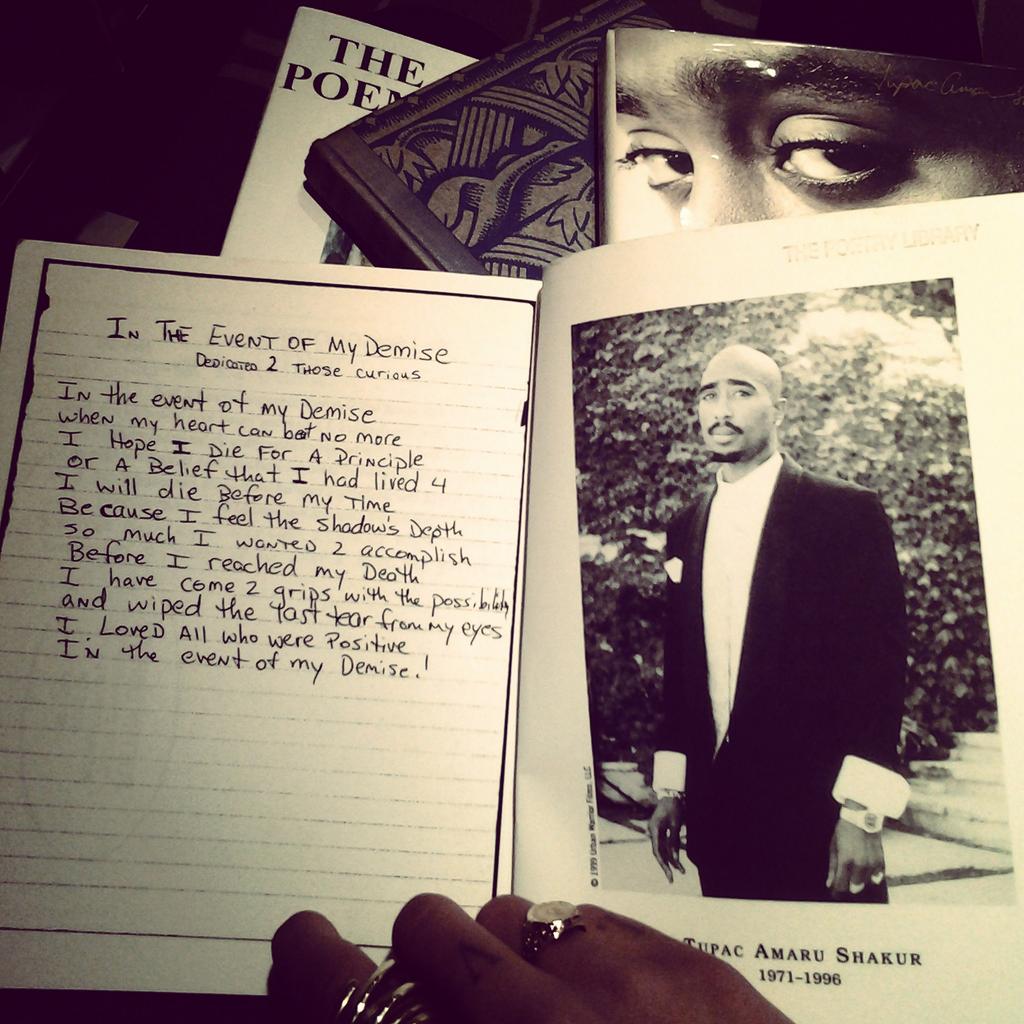 THE
POEM
Tupac Amaru S
THE POETRY LIBRARY
IN THE EVENT OF My Demise
DEDICATED 2 THOSE CURIOUS
IN the event of my Demise
when my heart can beat NO more
I Hope I Die For A Principle
or A Belief that I had lived 4
I will die Before my Time
Because I feel the shadow's Depth
so much I wanted 2 accomplish
Before I reached my Death
I have come 2 grips with the possibility
and wiped the last tear from my eyes
I Loved All who were Positive
IN the event of my Demise!
© 1999 Urban Warrior Films, LLC
TUPAC AMARU SHAKUR
1971–1996